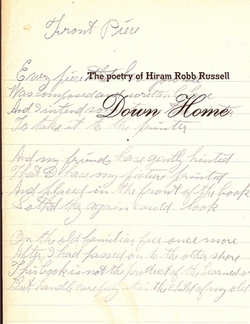 Front Piece
Every piece you see
The poetry of Hiram Robb Russell
Was composed and written
And I intend
Down Home
To take it to the printer
And my friends have gently hinted
That I have my picture printed
And placed in the front of the book
So that they again could look
On the old familiar face once more
After I had passed on to the other shore
This book is not the product of the learned
But handle carefully the child of my old